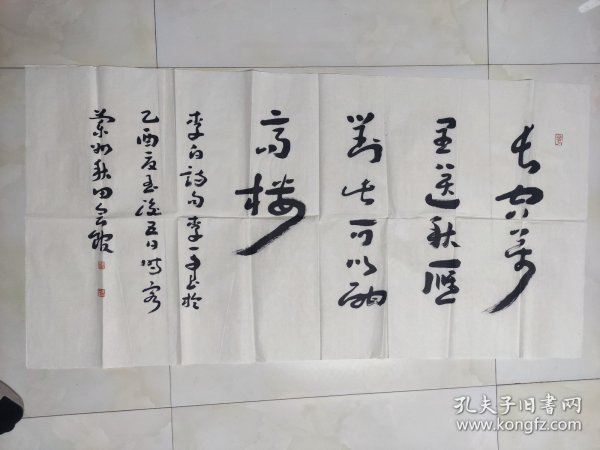 长风万
里送秋雁
对此可以酣
高楼
李白诗句李一平书于
乙酉夏至后五日时客
兰州秋田会馆
孔夫子旧书网
www.kongfz.com